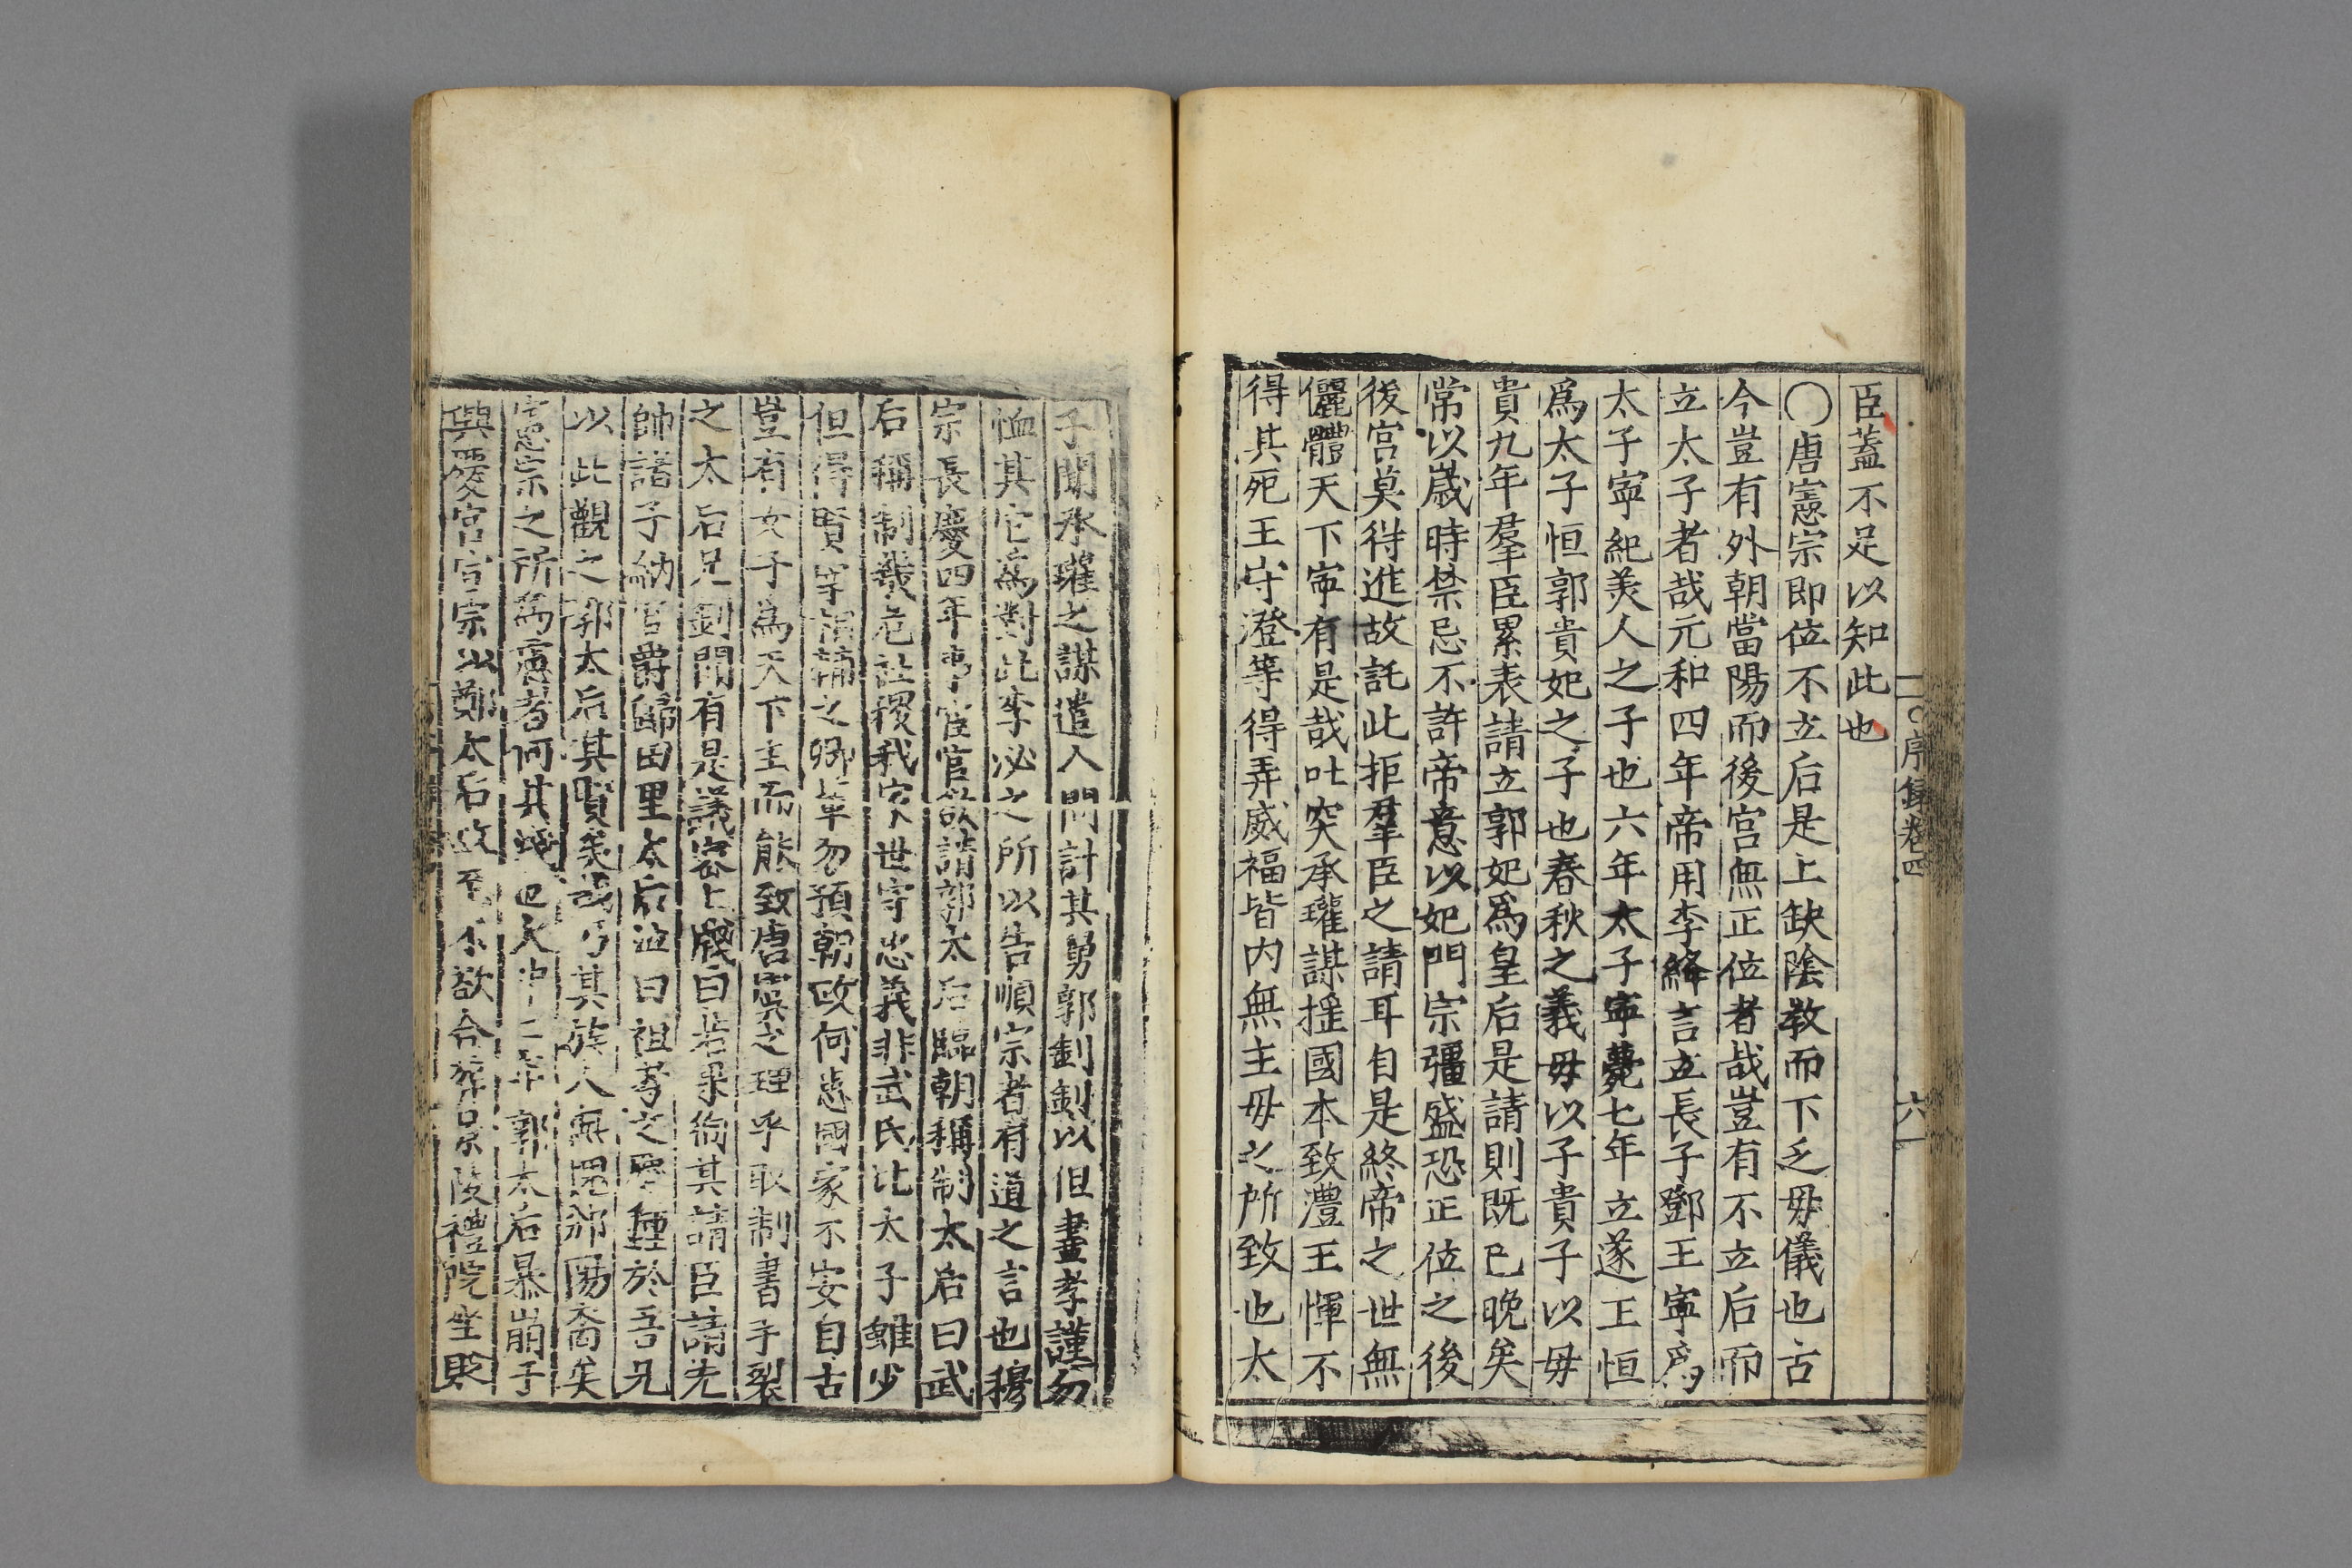 臣蓋不足以知此也
○唐憲宗即位不立后是上缺陰教而下乏毋儀也古
今豈有外朝當陽而後宮無正位者哉豈有不立后而
立太子者哉元和四年帝用李絳言立長子鄧王寧爲
太子寧紀美人之子也六年太子寧薨七年立遂王恒
爲太子恒郭貴妃之子也春秋之義毋以子貴子以毋
貴九年羣臣累表請立郭妃爲皇后是請則既已晚矣
常以歲時禁忌不許帝意以妃門宗彊盛恐正位之後
後宮莫得進故託此拒羣臣之請耳自是終帝之世無
儷體天下寧有是哉吐突承璀謀搖國本致澧王惲不
得其死王守澄等得弄威福皆内無主毋之所致也太
序錄卷四
六
子聞承璀之謀遣人問計其舅郭釗釗以但盡孝謹勿
恤其它爲對此李泌之所以告順宗者有道之言也穆
宗長慶四年崩宦官欲請郭太后臨朝稱制太后曰武
后稱制幾危社稷我家世守忠義非武氏比太子雖少
但得賢宰相輔之卿輩勿預朝政何患國家不安自古
豈有女子爲天下主而能致唐虞之理乎取制書手裂
之太后兄釗聞有是議密上牋曰若果徇其請臣請先
帥諸子納官爵歸田里太后泣曰祖考之慶鍾於吾兄
以此觀之郭太后其賢矣哉乃其族人無罪
憲宗之所爲慮者何其也大中二年郭太后暴崩于
興慶宮宣宗以鄭太后故不欲合葬景陵禮院坐貶